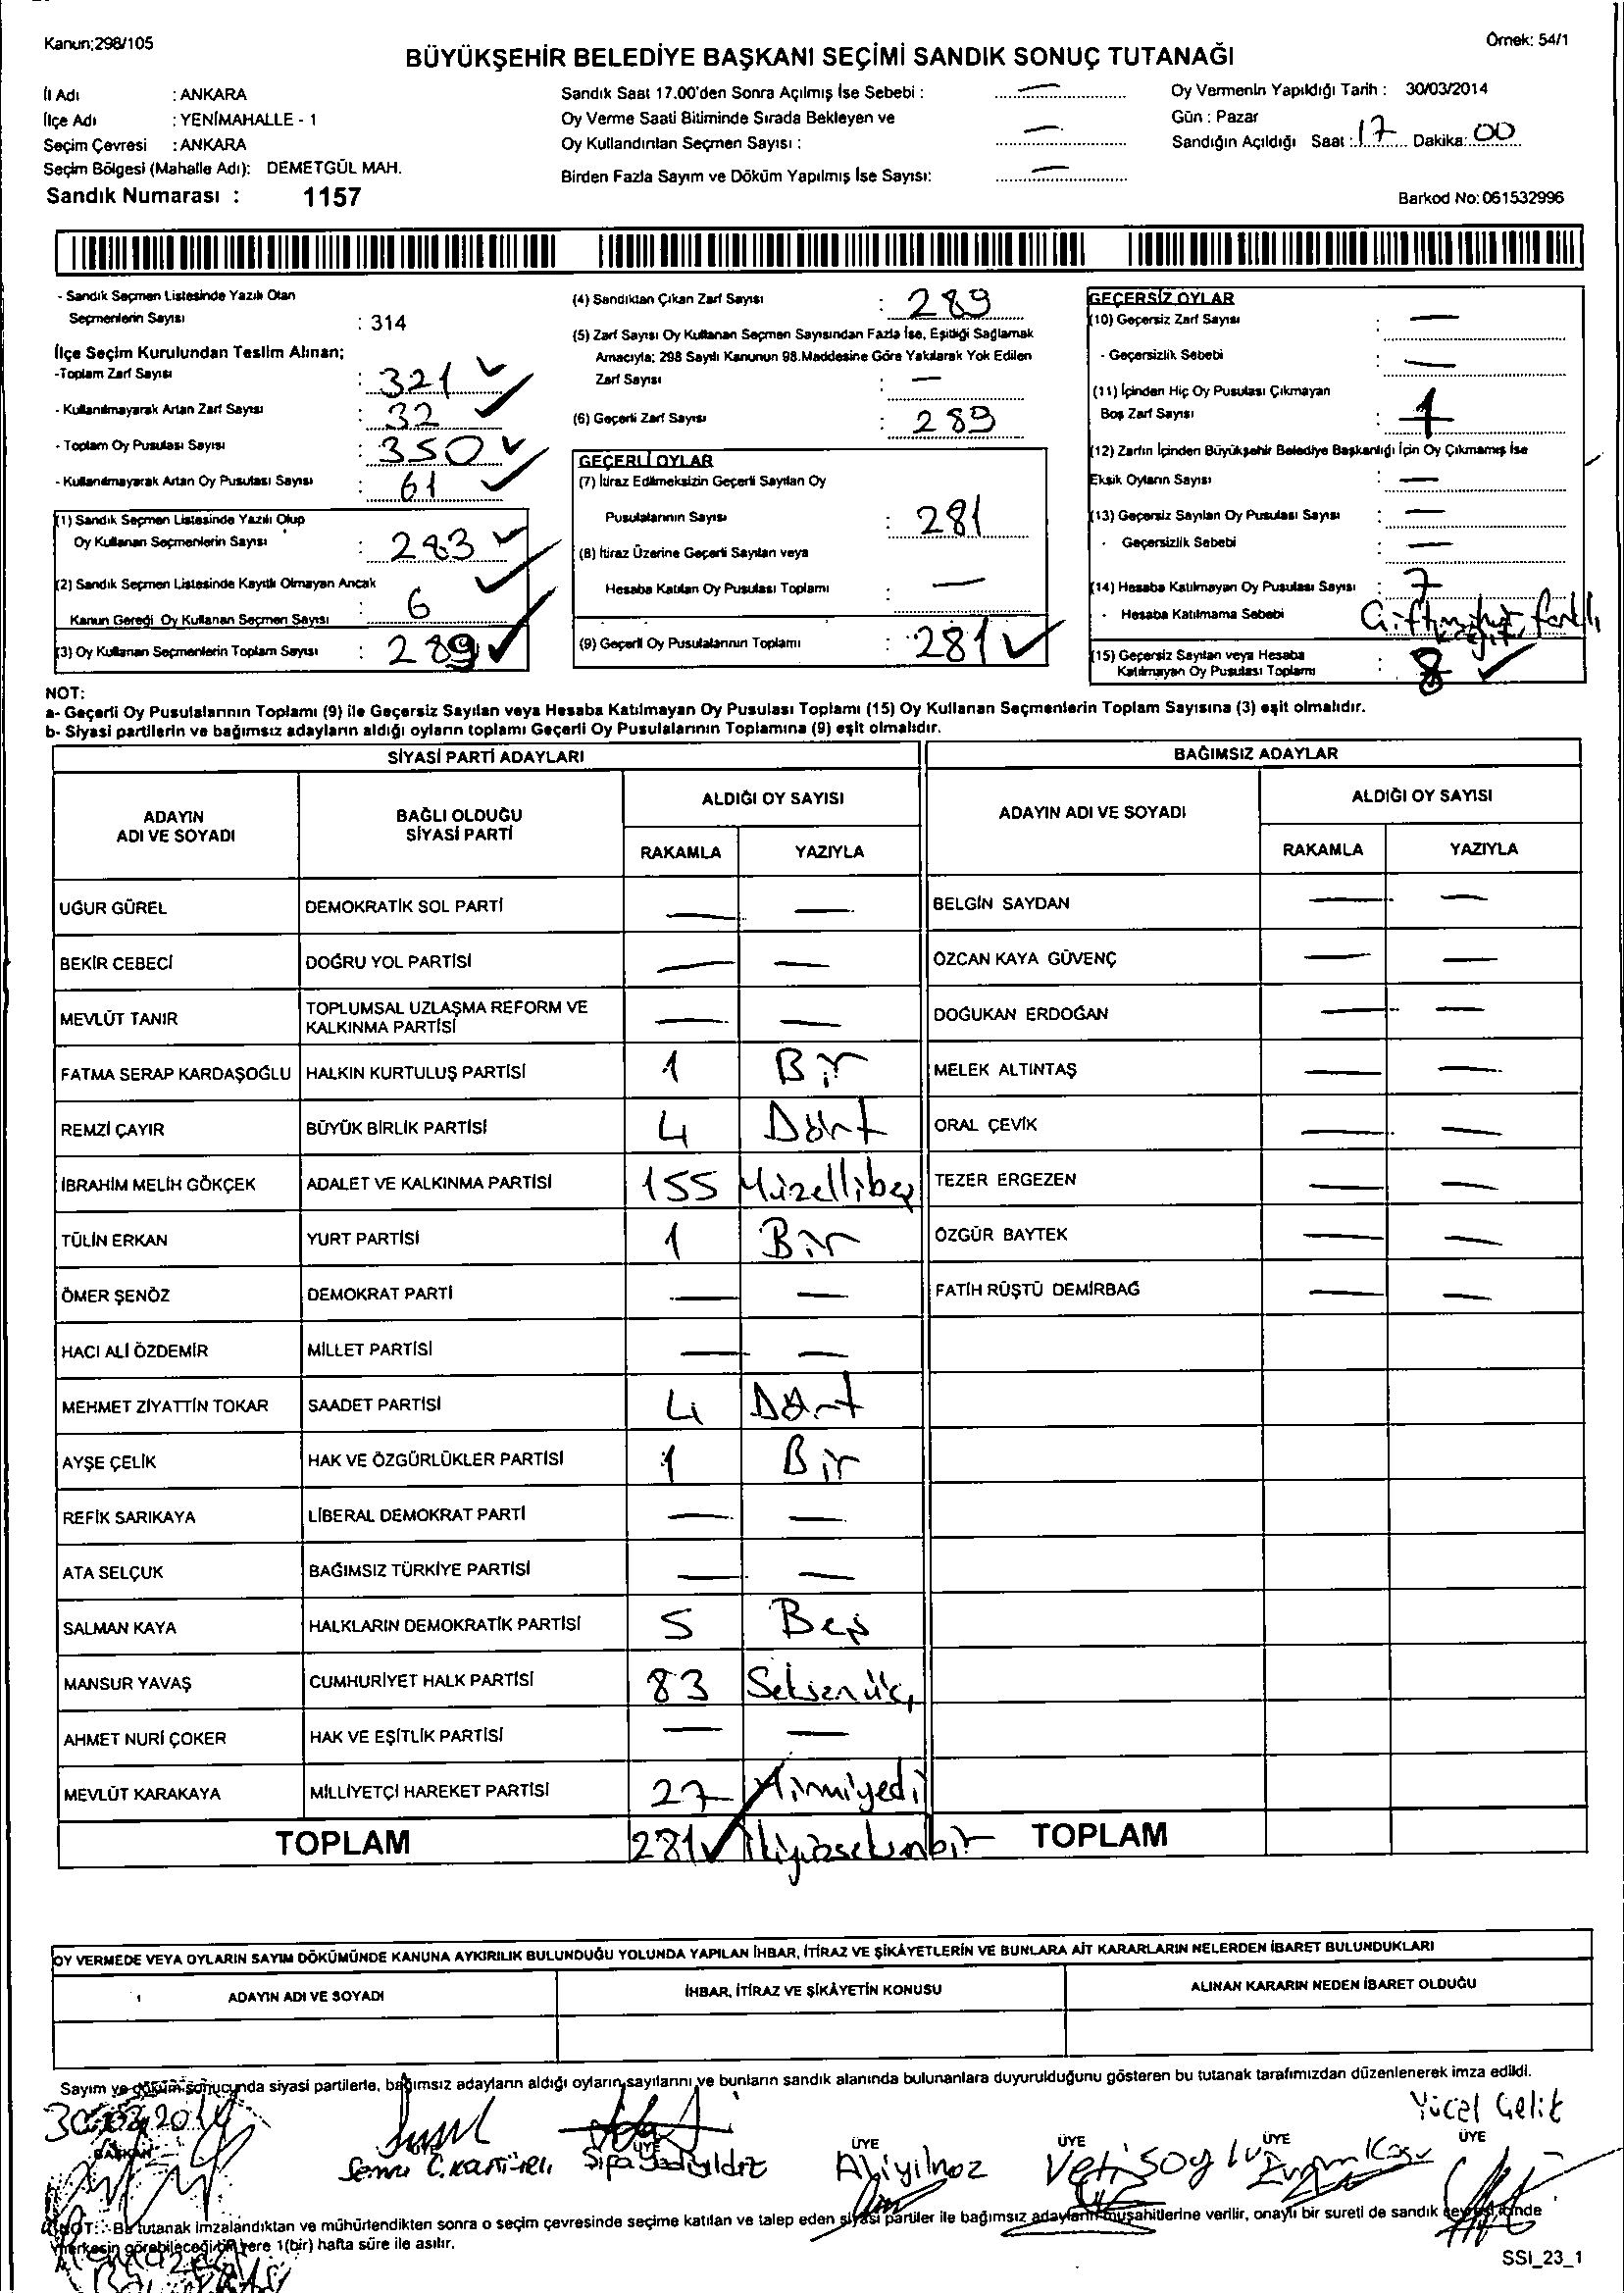 Kanun;298/105
Örnek: 54/1
BÜYÜKŞEHİR BELEDİYE BAŞKANI SEÇİMİ SANDIK SONUÇ TUTANAĞI
İl Adı : ANKARA
İlçe Adı : YENİMAHALLE - 1
Seçim Çevresi : ANKARA
Seçim Bölgesi (Mahalle Adı): DEMETGÜL MAH.
Sandık Numarası : 1157
Sandık Saat 17.00'den Sonra Açılmış İse Sebebi : —
Oy Verme Saati Bitiminde Sırada Bekleyen ve
Oy Kullandırılan Seçmen Sayısı : —
Birden Fazla Sayım ve Döküm Yapılmış İse Sayısı: —
Oy Vermenin Yapıldığı Tarih : 30/03/2014
Gün : Pazar
Sandığın Açıldığı Saat : 17 Dakika: 00
Barkod No: 061532996
- Sandık Seçmen Listesinde Yazılı Olan
Seçmenlerin Sayısı : 314
İlçe Seçim Kurulundan Teslim Alınan;
-Toplam Zarf Sayısı : 321
- Kullanılmayarak Artan Zarf Sayısı : 32
- Toplam Oy Pusulası Sayısı : 350
- Kullanılmayarak Artan Oy Pusulası Sayısı : 61
(1) Sandık Seçmen Listesinde Yazılı Olup
Oy Kullanan Seçmenlerin Sayısı : 283
(2) Sandık Seçmen Listesinde Kayıtlı Olmayan Ancak
Kanun Gereği Oy Kullanan Seçmen Sayısı : 6
(3) Oy Kullanan Seçmenlerin Toplam Sayısı : 289
(4) Sandıktan Çıkan Zarf Sayısı : 289
(5) Zarf Sayısı Oy Kullanan Seçmen Sayısından Fazla İse, Eşitliği Sağlamak
Amacıyla; 298 Sayılı Kanunun 98.Maddesine Göre Yakılarak Yok Edilen
Zarf Sayısı : —
(6) Geçerli Zarf Sayısı : 289
GEÇERLİ OYLAR
(7) İtiraz Edilmeksizin Geçerli Sayılan Oy
Pusulalarının Sayısı : 281
(8) İtiraz Üzerine Geçerli Sayılan veya
Hesaba Katılan Oy Pusulası Toplamı : —
(9) Geçerli Oy Pusulalarının Toplamı : 281
GEÇERSİZ OYLAR
(10) Geçersiz Zarf Sayısı : —
- Geçersizlik Sebebi : —
(11) İçinden Hiç Oy Pusulası Çıkmayan
Boş Zarf Sayısı : 1
(12) Zarfın İçinden Büyükşehir Belediye Başkanlığı İçin Oy Çıkmamış İse
Eksik Oyların Sayısı : —
(13) Geçersiz Sayılan Oy Pusulası Sayısı : —
- Geçersizlik Sebebi : —
(14) Hesaba Katılmayan Oy Pusulası Sayısı : 7
- Hesaba Katılmama Sebebi
(15) Geçersiz Sayılan veya Hesaba
Katılmayan Oy Pusulası Toplamı : 8
NOT:
a- Geçerli Oy Pusulalarının Toplamı (9) ile Geçersiz Sayılan veya Hesaba Katılmayan Oy Pusulası Toplamı (15) Oy Kullanan Seçmenlerin Toplam Sayısına (3) eşit olmalıdır.
b- Siyasi partilerin ve bağımsız adayların aldığı oyların toplamı Geçerli Oy Pusulalarının Toplamına (9) eşit olmalıdır.
SİYASİ PARTİ ADAYLARI
BAĞIMSIZ ADAYLAR
ADAYIN ADI VE SOYADI
BAĞLI OLDUĞU SİYASİ PARTİ
ALDIĞI OY SAYISI
RAKAMLA YAZIYLA
ADAYIN ADI VE SOYADI
ALDIĞI OY SAYISI
RAKAMLA YAZIYLA
UĞUR GÜREL DEMOKRATİK SOL PARTİ — — BELGİN SAYDAN — —
BEKİR CEBECİ DOĞRU YOL PARTİSİ — — ÖZCAN KAYA GÜVENÇ — —
MEVLÜT TANIR TOPLUMSAL UZLAŞMA REFORM VE KALKINMA PARTİSİ — — DOĞUKAN ERDOĞAN — —
FATMA SERAP KARDAŞOĞLU HALKIN KURTULUŞ PARTİSİ 1 Bir MELEK ALTINTAŞ — —
REMZİ ÇAYIR BÜYÜK BİRLİK PARTİSİ 4 Dört ORAL ÇEVİK — —
İBRAHİM MELİH GÖKÇEK ADALET VE KALKINMA PARTİSİ 155 Yüzellibeş TEZER ERGEZEN — —
TÜLİN ERKAN YURT PARTİSİ 1 Bir ÖZGÜR BAYTEK — —
ÖMER ŞENÖZ DEMOKRAT PARTİ — — FATİH RÜŞTÜ DEMİRBAĞ — —
HACI ALİ ÖZDEMİR MİLLET PARTİSİ — —
MEHMET ZİYATTİN TOKAR SAADET PARTİSİ 4 Dört
AYŞE ÇELİK HAK VE ÖZGÜRLÜKLER PARTİSİ 1 Bir
REFİK SARIKAYA LİBERAL DEMOKRAT PARTİ — —
ATA SELÇUK BAĞIMSIZ TÜRKİYE PARTİSİ — —
SALMAN KAYA HALKLARIN DEMOKRATİK PARTİSİ 5 Beş
MANSUR YAVAŞ CUMHURİYET HALK PARTİSİ 83 Seksenüç
AHMET NURİ ÇOKER HAK VE EŞİTLİK PARTİSİ — —
MEVLÜT KARAKAYA MİLLİYETÇİ HAREKET PARTİSİ 27 Yirmiyedi
TOPLAM 281 İkiyüzseksenbir TOPLAM
OY VERMEDE VEYA OYLARIN SAYIM DÖKÜMÜNDE KANUNA AYKIRILIK BULUNDUĞU YOLUNDA YAPILAN İHBAR, İTİRAZ VE ŞİKÂYETLERİN VE BUNLARA AİT KARARLARIN NELERDEN İBARET BULUNDUKLARI
ADAYIN ADI VE SOYADI İHBAR, İTİRAZ VE ŞİKÂYETİN KONUSU ALINAN KARARIN NEDEN İBARET OLDUĞU
Sayım ve döküm sonucunda siyasi partilerle, bağımsız adayların aldığı oyların sayılarını ve bunların sandık alanında bulunanlara duyurulduğunu gösteren bu tutanak tarafımızdan düzenlenerek imza edildi.
30.03.2014
Yücel Çelik
BAŞKAN ÜYE ÜYE ÜYE ÜYE ÜYE ÜYE
Ali yılmaz
NOT: Bu tutanak imzalandıktan ve mühürlendikten sonra o seçim çevresinde seçime katılan ve talep eden siyasi partiler ile bağımsız adayların müşahitlerine verilir, onaylı bir sureti de sandık çevresi içinde
herkesin görebileceği bir yere 1(bir) hafta süre ile asılır.
SSI_23_1